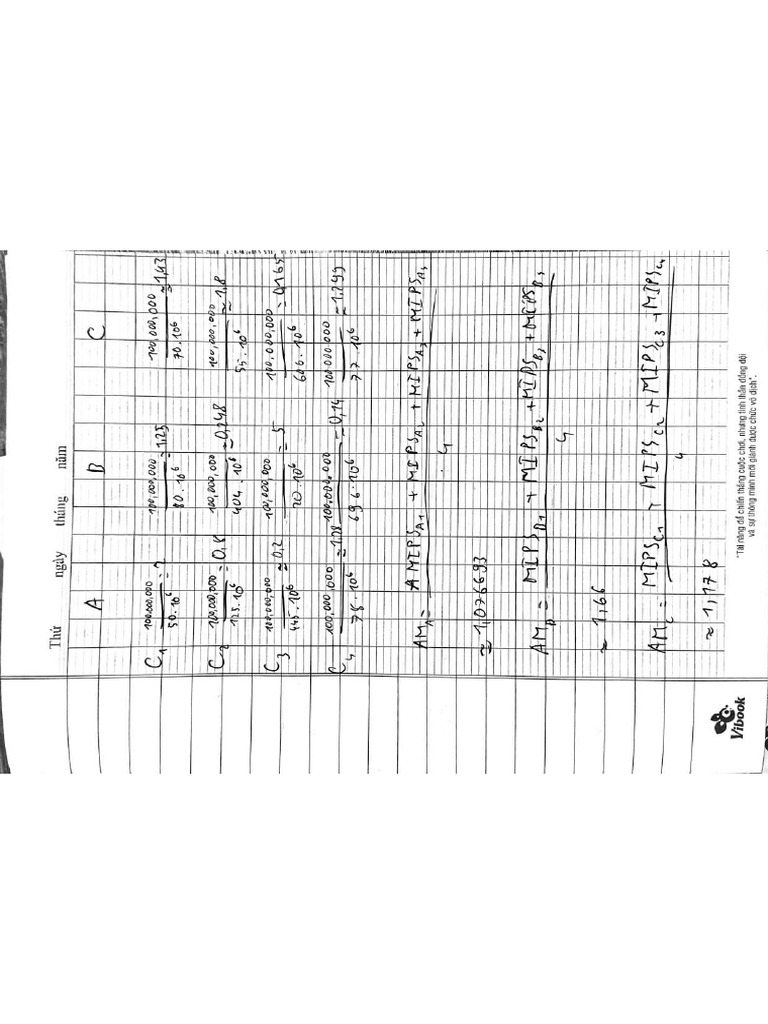 Thứ ngày tháng năm
A B C
C1 100,000,000 / 50.10^6 = 2 100,000,000 / 80.10^6 = 1,25 100,000,000 / 70.10^6 ≈ 1,43
C2 100,000,000 / 125.10^6 = 0,8 100,000,000 / 404.10^6 ≈ 0,248 100,000,000 / 55.10^6 ≈ 1,8
C3 100,000,000 / 445.10^6 ≈ 0,2 100,000,000 / 20.10^6 = 5 100,000,000 / 606.10^6 ≈ 0,165
C4 100,000,000 / 78.10^6 ≈ 1,28 100,000,000 / 696.10^6 ≈ 0,14 100 000 000 / 77.10^6 ≈ 1,299
AM_A = A MIPS_A1 + MIPS_A2 + MIPS_A3 + MIPS_A4 / 4
≈ 1,076693
AM_B = MIPS_B1 + MIPS_B2 + MIPS_B3 + MIPS_B4 / 4
≈ 1,66
AM_C = MIPS_C1 + MIPS_C2 + MIPS_C3 + MIPS_C4 / 4
≈ 1,178
Vibook
"Tài năng để chiến thắng cuộc chơi, nhưng tinh thần đồng đội
và sự thông minh mới giành được chức vô địch".